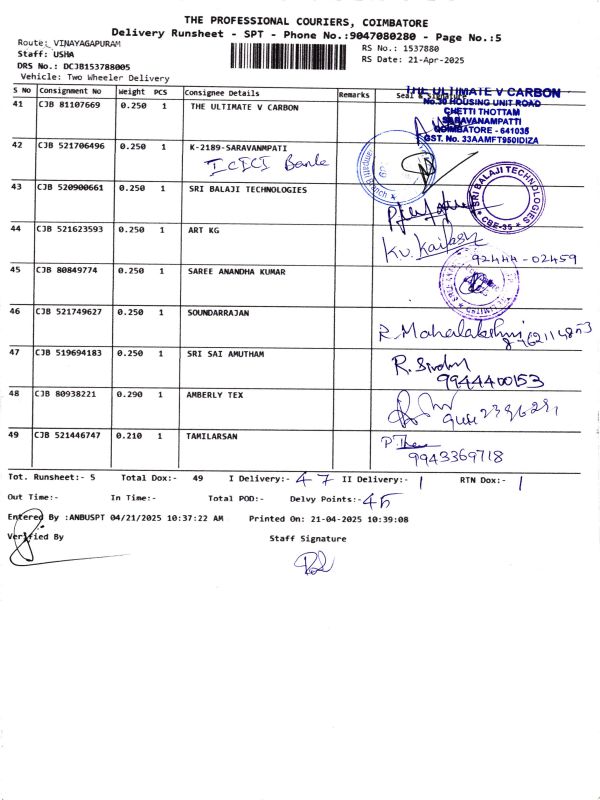 THE PROFESSIONAL COURIERS, COIMBATORE
Delivery Runsheet - SPT - Phone No.:9047080280 - Page No.:5
Route: VINAYAGAPURAM
Staff: USHA
DRS No.: DCJB153788005
Vehicle: Two Wheeler Delivery
RS No.: 1537880
RS Date: 21-Apr-2025
S No Consignment No Weight PCS Consignee Details Remarks Seal & Signature
41 CJB 81107669 0.250 1 THE ULTIMATE V CARBON
THE ULTIMATE V CARBON
No.30 HOUSING UNIT ROAD
CHETTI THOTTAM
SARAVANAMPATTI
COIMBATORE - 641035
GST. No. 33AAMFT9501DIZA
42 CJB 521706496 0.250 1 K-2189-SARAVANMPATI
ICICI Bank
43 CJB 520900661 0.250 1 SRI BALAJI TECHNOLOGIES
SRI BALAJI TECHNOLOGIES
CBE-35
44 CJB 521623593 0.250 1 ART KG
92444-02459
45 CJB 80849774 0.250 1 SAREE ANANDHA KUMAR
46 CJB 521749627 0.250 1 SOUNDARRAJAN
R. Mahalakshmi
47 CJB 519694183 0.250 1 SRI SAI AMUTHAM
9944400153
48 CJB 80938221 0.290 1 AMBERLY TEX
49 CJB 521446747 0.210 1 TAMILARSAN
9943369718
Tot. Runsheet:- 5 Total Dox:- 49 I Delivery:- 47 II Delivery:- 1 RTN Dox:- 1
Out Time:- In Time:- Total POD:- Delvy Points:- 45
Entered By :ANBUSPT 04/21/2025 10:37:22 AM Printed On: 21-04-2025 10:39:08
Verified By Staff Signature